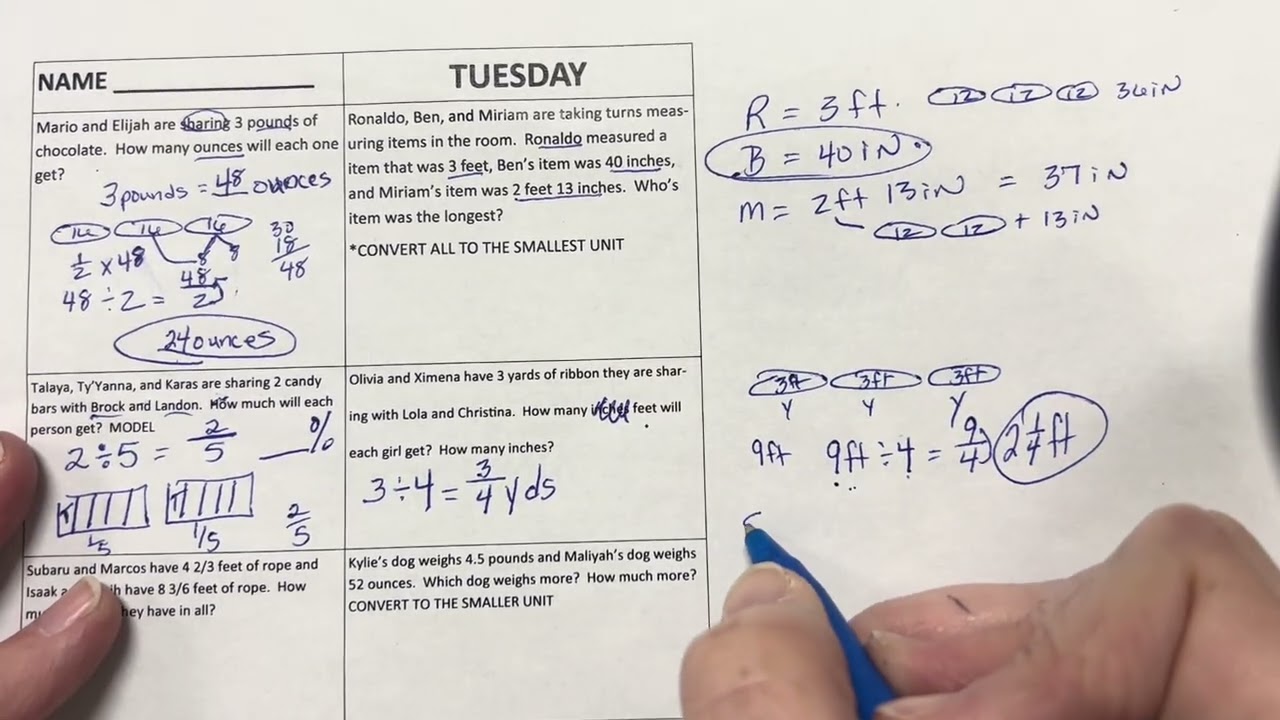 NAME
TUESDAY
Mario and Elijah are sharing 3 pounds of
chocolate. How many ounces will each one
get?
3 pounds = 48 ounces
16 16 16
8 8
30
18
48
1/2 x 48
48 ÷ 2 = 48/2
24 ounces
Ronaldo, Ben, and Miriam are taking turns meas-
uring items in the room. Ronaldo measured a
item that was 3 feet, Ben's item was 40 inches,
and Miriam's item was 2 feet 13 inches. Who's
item was the longest?
*CONVERT ALL TO THE SMALLEST UNIT
R = 3 ft. 12 12 12 36 iN
B = 40 iN.
M = 2ft 13 iN = 37 iN
12 12 + 13 iN
Talaya, Ty'Yanna, and Karas are sharing 2 candy
bars with Brock and Landon. How much will each
person get? MODEL
2 ÷ 5 = 2/5 %
1/5 1/5 2/5
Olivia and Ximena have 3 yards of ribbon they are shar-
ing with Lola and Christina. How many feet will
each girl get? How many inches?
3 ÷ 4 = 3/4 yds
3ft 3ft 3ft
Y Y Y
9ft 9ft ÷ 4 = 9/4 2 1/4 ft
Subaru and Marcos have 4 2/3 feet of rope and
Isaak have 8 3/6 feet of rope. How
they have in all?
Kylie's dog weighs 4.5 pounds and Maliyah's dog weighs
52 ounces. Which dog weighs more? How much more?
CONVERT TO THE SMALLER UNIT